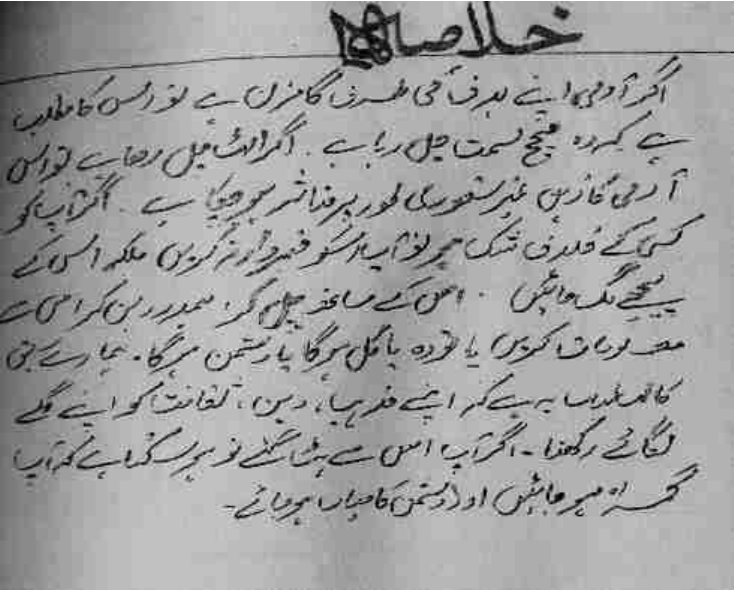 خلاصہ
اگر آدمی اپنے ہدف کی طرف گامزن ہے تو اس کا مطلب
ہے کہ وہ صحیح سمت چل رہا ہے۔ اگر الٹ چل رہا ہے تو اس
آدمی کا ذہن غیر شعوری طور پر متاثر ہو چکا ہے۔ اگر آپ کو
کسی کے خلاف شک ہو تو آپ اسکو خبردار نہ کریں بلکہ اس کے
پیچھے لگ جائیں۔ اس کے ساتھ چل کر، ہمدرد بن کر اس سے
معلومات کریں یا تو وہ پاگل ہوگا یا دشمن ہوگا۔ ہمارے
کا مطلب یہ ہے کہ اپنے مذہب، دین، ثقافت کو اپنے گلے
لگائے رکھنا۔ اگر آپ اس سے ہٹ گئے تو ہو سکتا ہے کہ آپ
گمراہ ہو جائیں اور دشمن کامیاب ہو جائے۔